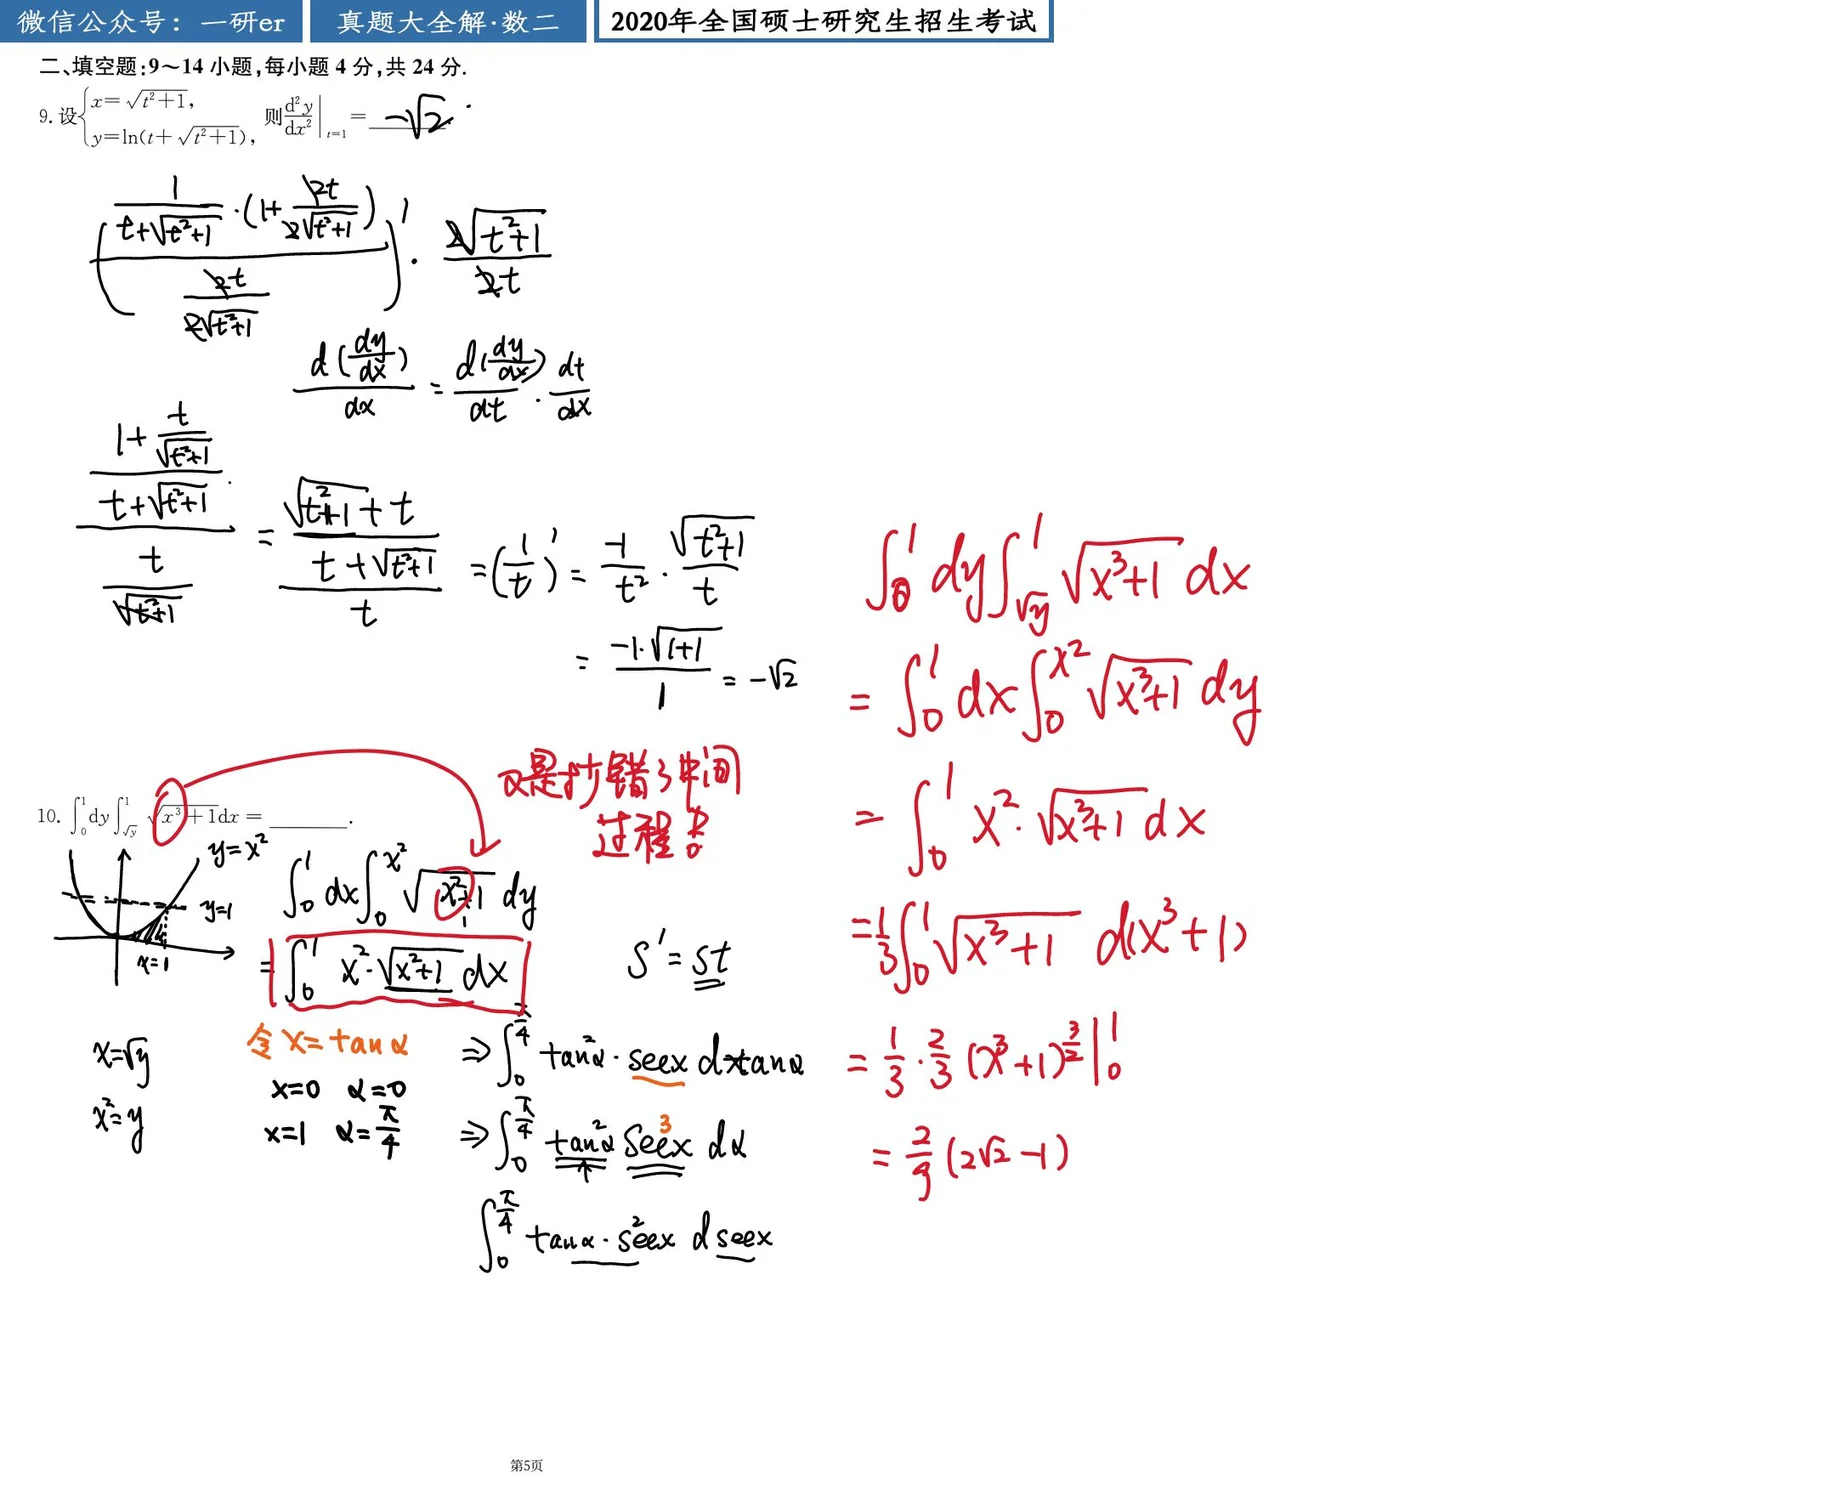 微信公众号：一研er 真题大全解·数二 2020年全国硕士研究生招生考试
二、填空题:9～14 小题,每小题 4 分,共 24 分.
9. 设{x=√(t²+1), y=ln(t+√(t²+1)), 则 d²y/dx²|_{t=1} = -√2
(1/(t+√(t²+1)) · (1+2t/(2√(t²+1))) / (2t/(2√(t²+1))))' · 2√(t²+1)/2t
d(dy/dx)/dx = d(dy/dx)/dt · dt/dx
((1+t/√(t²+1))/(t+√(t²+1)))/(t/√(t²+1)) = ((√(t²+1)+t)/(t+√(t²+1)))/t = (1/t)' = -1/t² · √(t²+1)/t
= -1·√(1+1)/1 = -√2
10. ∫₀¹dy∫_{√y}¹ √(x³+1)dx = ________.
又是抄错了中间
过程!
y=x²
y=1
x=1
∫₀¹ dx∫₀^{x²} √(x²+1) dy
= ∫₀¹ x²·√(x²+1) dx
S' = st
x=√y
x²=y
令 x=tanα
x=0 α=0
x=1 α=π/4
⇒ ∫₀^{π/4} tan²α · secx dtanα
⇒ ∫₀^{π/4} tan²α sec³x dα
∫₀^{π/4} tanα · sec²x dsecx
∫₀¹ dy∫_{√y}¹ √(x³+1) dx
= ∫₀¹ dx∫₀^{x²} √(x³+1) dy
= ∫₀¹ x²·√(x³+1) dx
= 1/3 ∫₀¹ √(x³+1) d(x³+1)
= 1/3 · 2/3 (x³+1)^{3/2}|₀¹
= 2/9 (2√2-1)
第5页